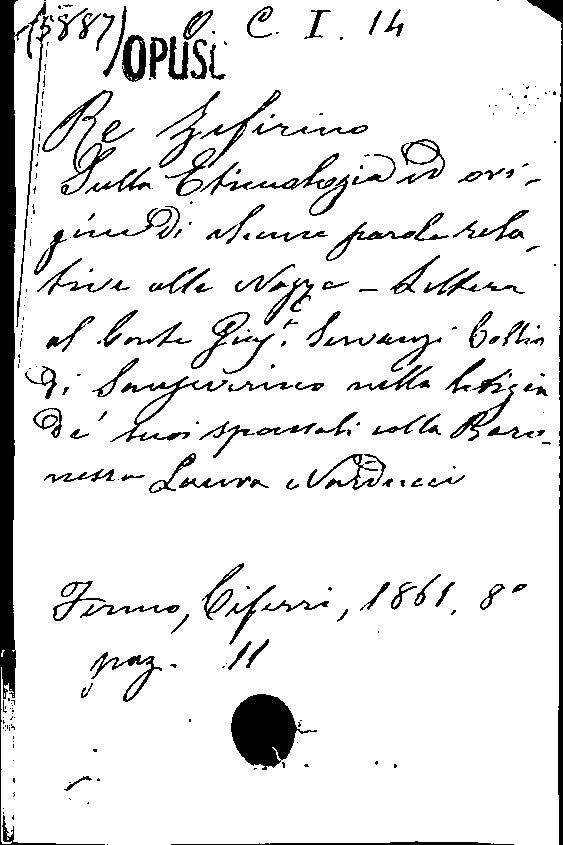 (5887) O. C. I. 14
OPUSC
Re Zefirino
Sulla Etimologia ed ori-
gine di alcune parole rela-
tive alle Nozze - Lettera
al Conte Giuse. Servanzi Collio
di Sanseverino nella letizia
de' suoi sponsali colla Baro-
nessa Laura Narducci
Fermo, Ciferri, 1861. 8°
pag. 11